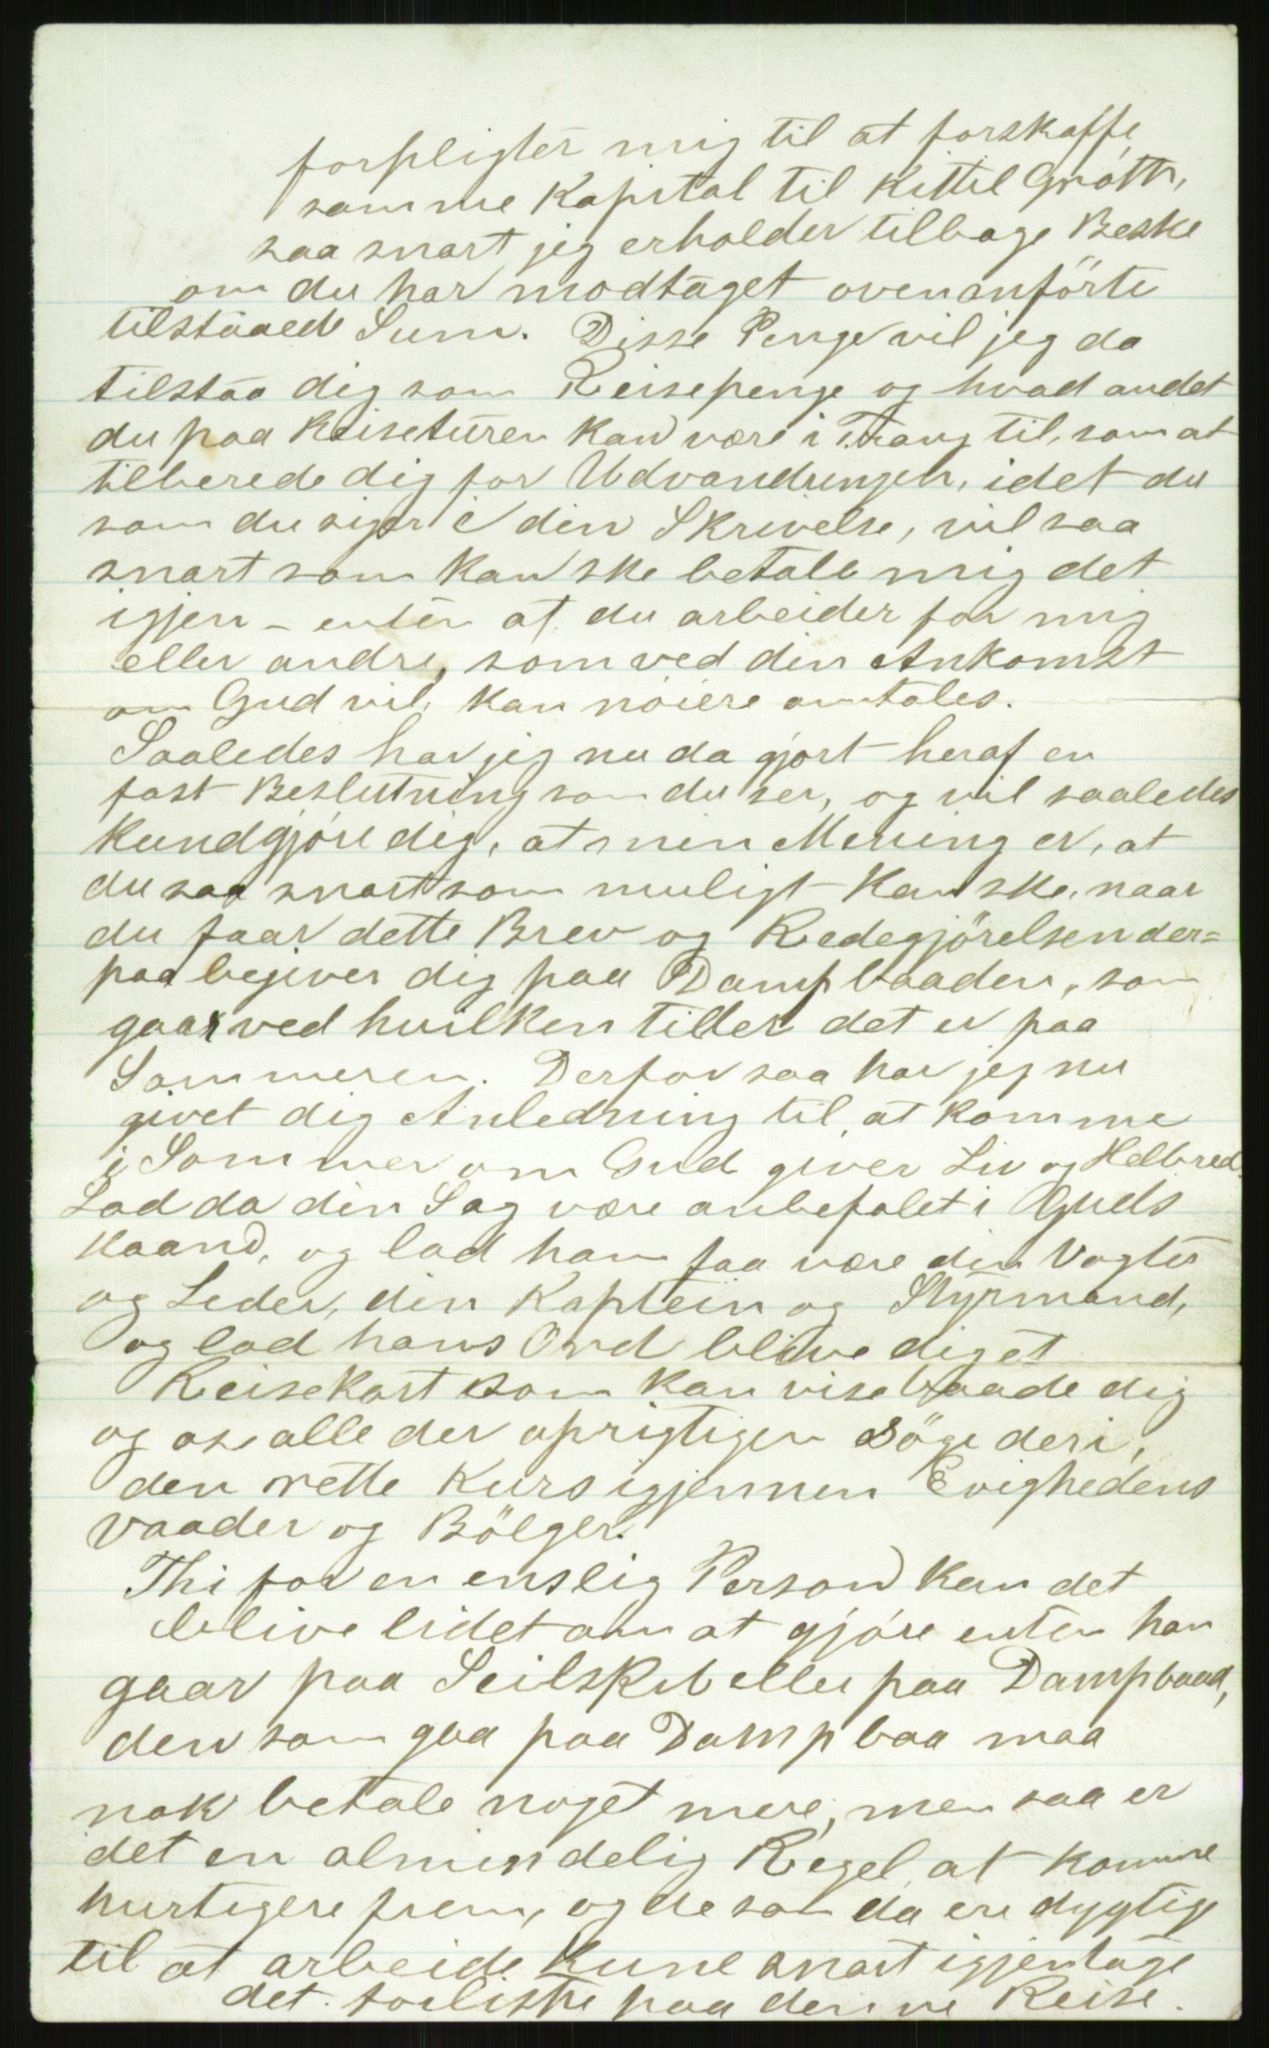 forpligter mig til at forskaffe
samme Kapital til Kittil Grótti,
saa snart jeg erholder tilbage Beske
om du har modtaget ovenanförte
tilstaaede Sum. Disse Penge vil jeg da
tilstaa dig som Reisepenge og hvad andet
du paa Reiseturen kan være i Trang til, som at
tilberede dig for Udvandringen, idet du
som du siger i din Skrivelse, vil saa
snart som kan ske betale mig det
igjen – enten at du arbeider for mig
eller andre, som ved din Ankomst
om Gud vil, kan nóiere omtales.
Saaledes har jeg nu da gjort heraf en
fast Beslutning som du ser, og vil saaledes
kundgjóre dig, at min Mening er, at
du saa snart som muligt kan ske, naar
du faar dette Brev og Redegjörelsen der=
paa begiver dig paa Dampbaaden, som
gaar ved hvilken tider det er paa
Sommeren. Derfor saa har jeg nu
givet dig Anledning til, at komme
i Sommer om Gud giver Liv og Helbred.
Lad da din Sag være anbefalet i Guds
Haand, og lad ham faa være din Vogter
og Leder, din Kaptein og Styrmand,
og lad hans Ord blive dig et
Reisekart som kan vise baade dig
og os alle der oprigtigen söge deri,
den rette Kurs igjennen Evighedens
Vaader og Bölger.
Thi for en enslig Person kan det
blive lidet om at gjóre enten han
gaar paa Seilskib eller paa Dampbaad,
den som gaa paa Dampbaa maa
nok betale noget mere, men saa er
det en almindelig Regel, at komme
hurtigere frem, og de som da ere dygtige
til at arbeide kune snart igjentage
det paa denne Reise.